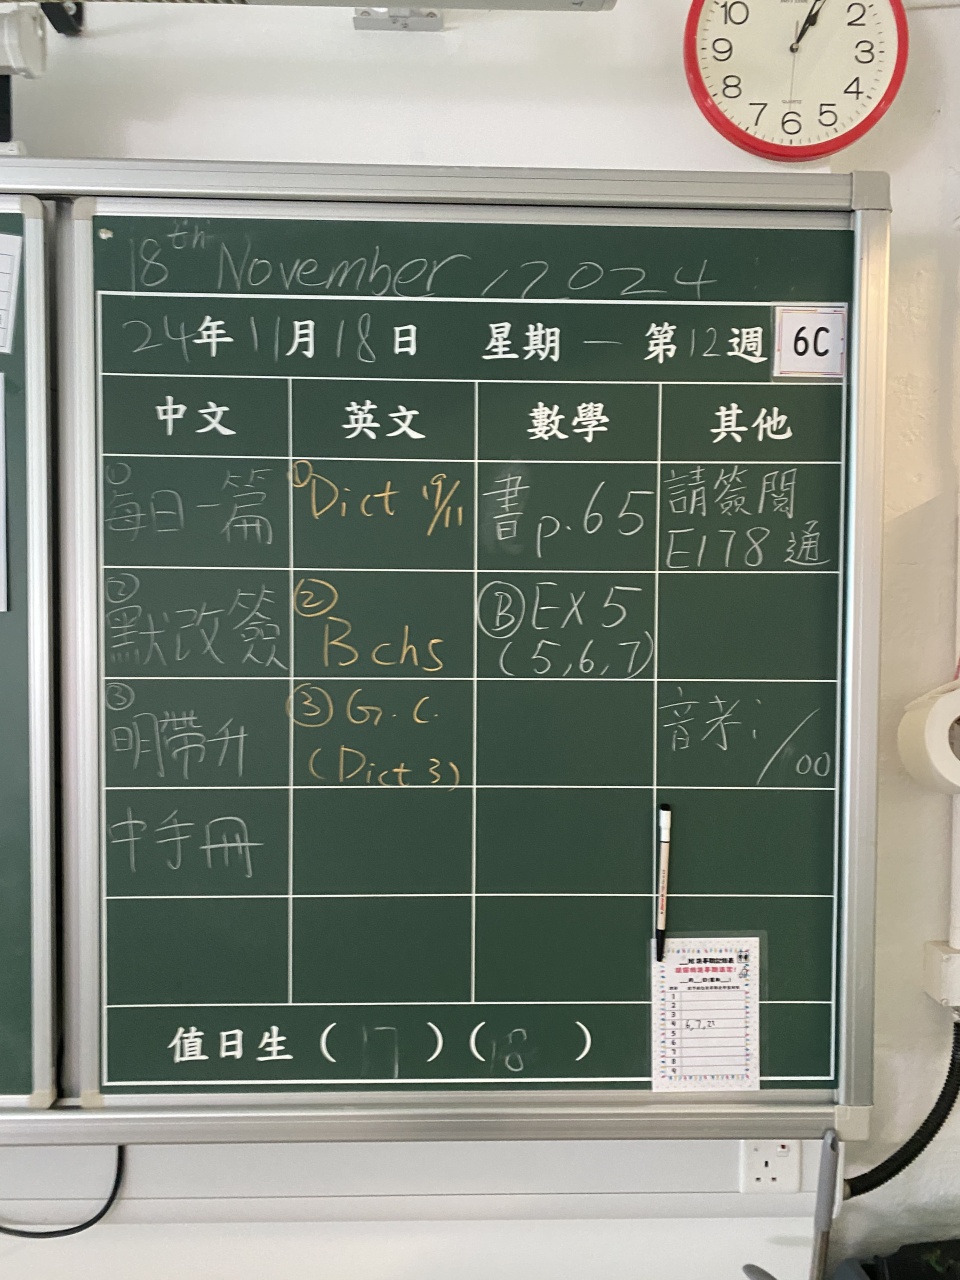 10
2
9
3
8
4
7
6
5
QUARTZ
18th November, 2024
24年11月18日 星期一 第12週 6C
中文 英文 數學 其他
① 每日一篇
① Dict 19/11
書 p.65
請簽閱 E178 通
② 默改簽
② B chs
Ⓑ EX 5 (5,6,7)
③ 明帶升
③ G. C. (Dict 3)
音考: /00
中手冊
1
2
3
4 6,7,21
5
6
7
8
9
值日生 ( 17 ) ( 18 )